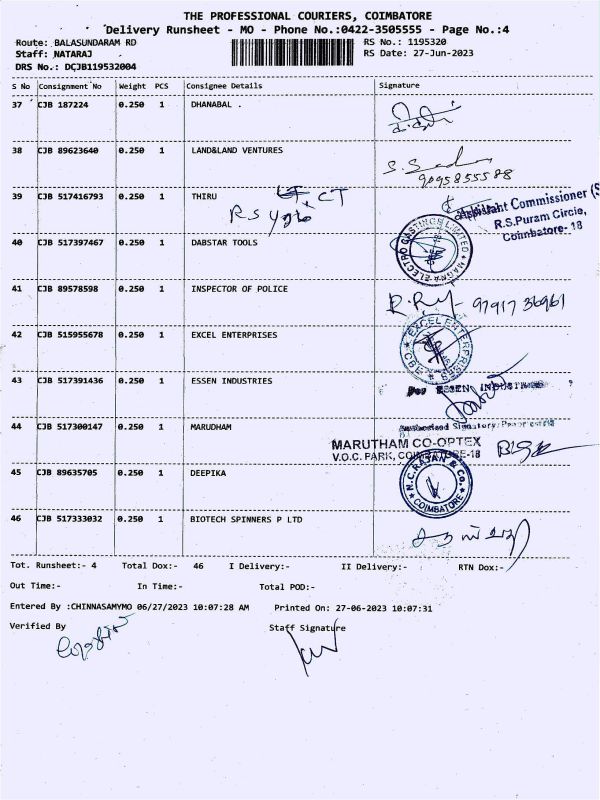 THE PROFESSIONAL COURIERS, COIMBATORE
Delivery Runsheet - MO - Phone No.:0422-3505555 - Page No.:4
Route: BALASUNDARAM RD RS No.: 1195320
Staff: NATARAJ RS Date: 27-Jun-2023
DRS No.: DCJB119532004
S No Consignment No Weight PCS Consignee Details Signature
37 CJB 187224 0.250 1 DHANABAL .
38 CJB 89623640 0.250 1 LAND&LAND VENTURES
9095855588
39 CJB 517416793 0.250 1 THIRU CT
Assistant Commissioner (S
R.S.Puram Circle,
Coimbatore- 18
40 CJB 517397467 0.250 1 DABSTAR TOOLS
MAGNA ELECTRO CASTINGS LIMITED
41 CJB 89578598 0.250 1 INSPECTOR OF POLICE
97917 36961
42 CJB 515955678 0.250 1 EXCEL ENTERPRISES
EXCEL ENTERPRISES CBE
43 CJB 517391436 0.250 1 ESSEN INDUSTRIES
For ESSEN INDUSTRIES
Authorised Signatory/Proprietrix
44 CJB 517300147 0.250 1 MARUDHAM
MARUTHAM CO-OPTEX
V.O.C. PARK, COIMBATORE-18
45 CJB 89635705 0.250 1 DEEPIKA
N.C. RAJAN & Co. COIMBATORE
46 CJB 517333032 0.250 1 BIOTECH SPINNERS P LTD
Tot. Runsheet:- 4 Total Dox:- 46 I Delivery:- II Delivery:- RTN Dox:-
Out Time:- In Time:- Total POD:-
Entered By :CHINNASAMYMO 06/27/2023 10:07:28 AM Printed On: 27-06-2023 10:07:31
Verified By Staff Signature